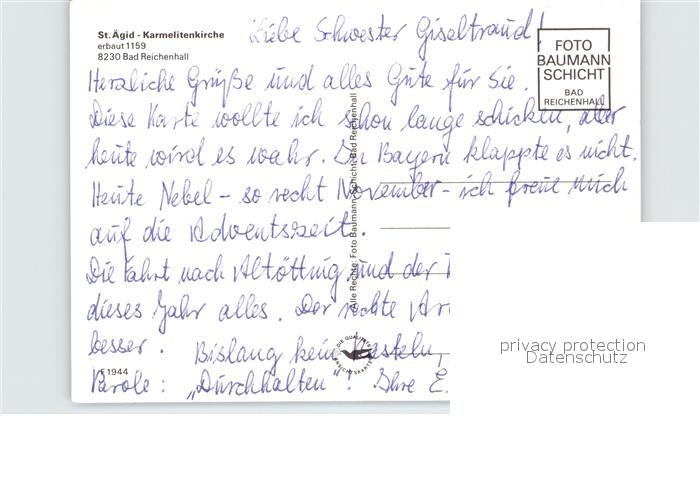 St. Ägid - Karmelitenkirche
erbaut 1159
8230 Bad Reichenhall
Liebe Schwester Giseltraud!
FOTO
BAUMANN
SCHICHT
BAD
REICHENHALL
Herzliche Grüße und alles Gute für Sie.
Diese Karte wollte ich schon lange schicken, aber
heute wird es wahr. In Bayern klappte es nicht.
Heute Nebel - so recht November - ich freue mich
auf die Adventszeit.
Die Fahrt nach Altötting und der
dieses Jahr alles. Der rechte
besser. Bislang kein Basteln,
Parole: „Durchhalten"! Ihre E.
Alle Rechte: Foto Baumann-Schicht, Bad Reichenhall
1944
privacy protection
Datenschutz